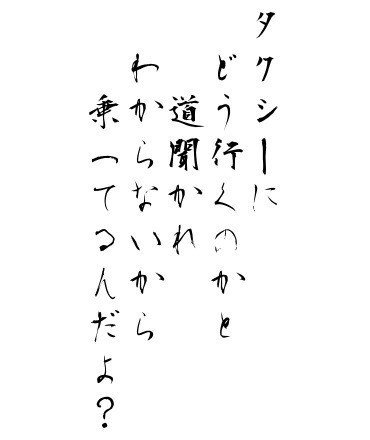 タクシーに
どう行くのかと
道聞かれ
わからないから
乗ってるんだよ？